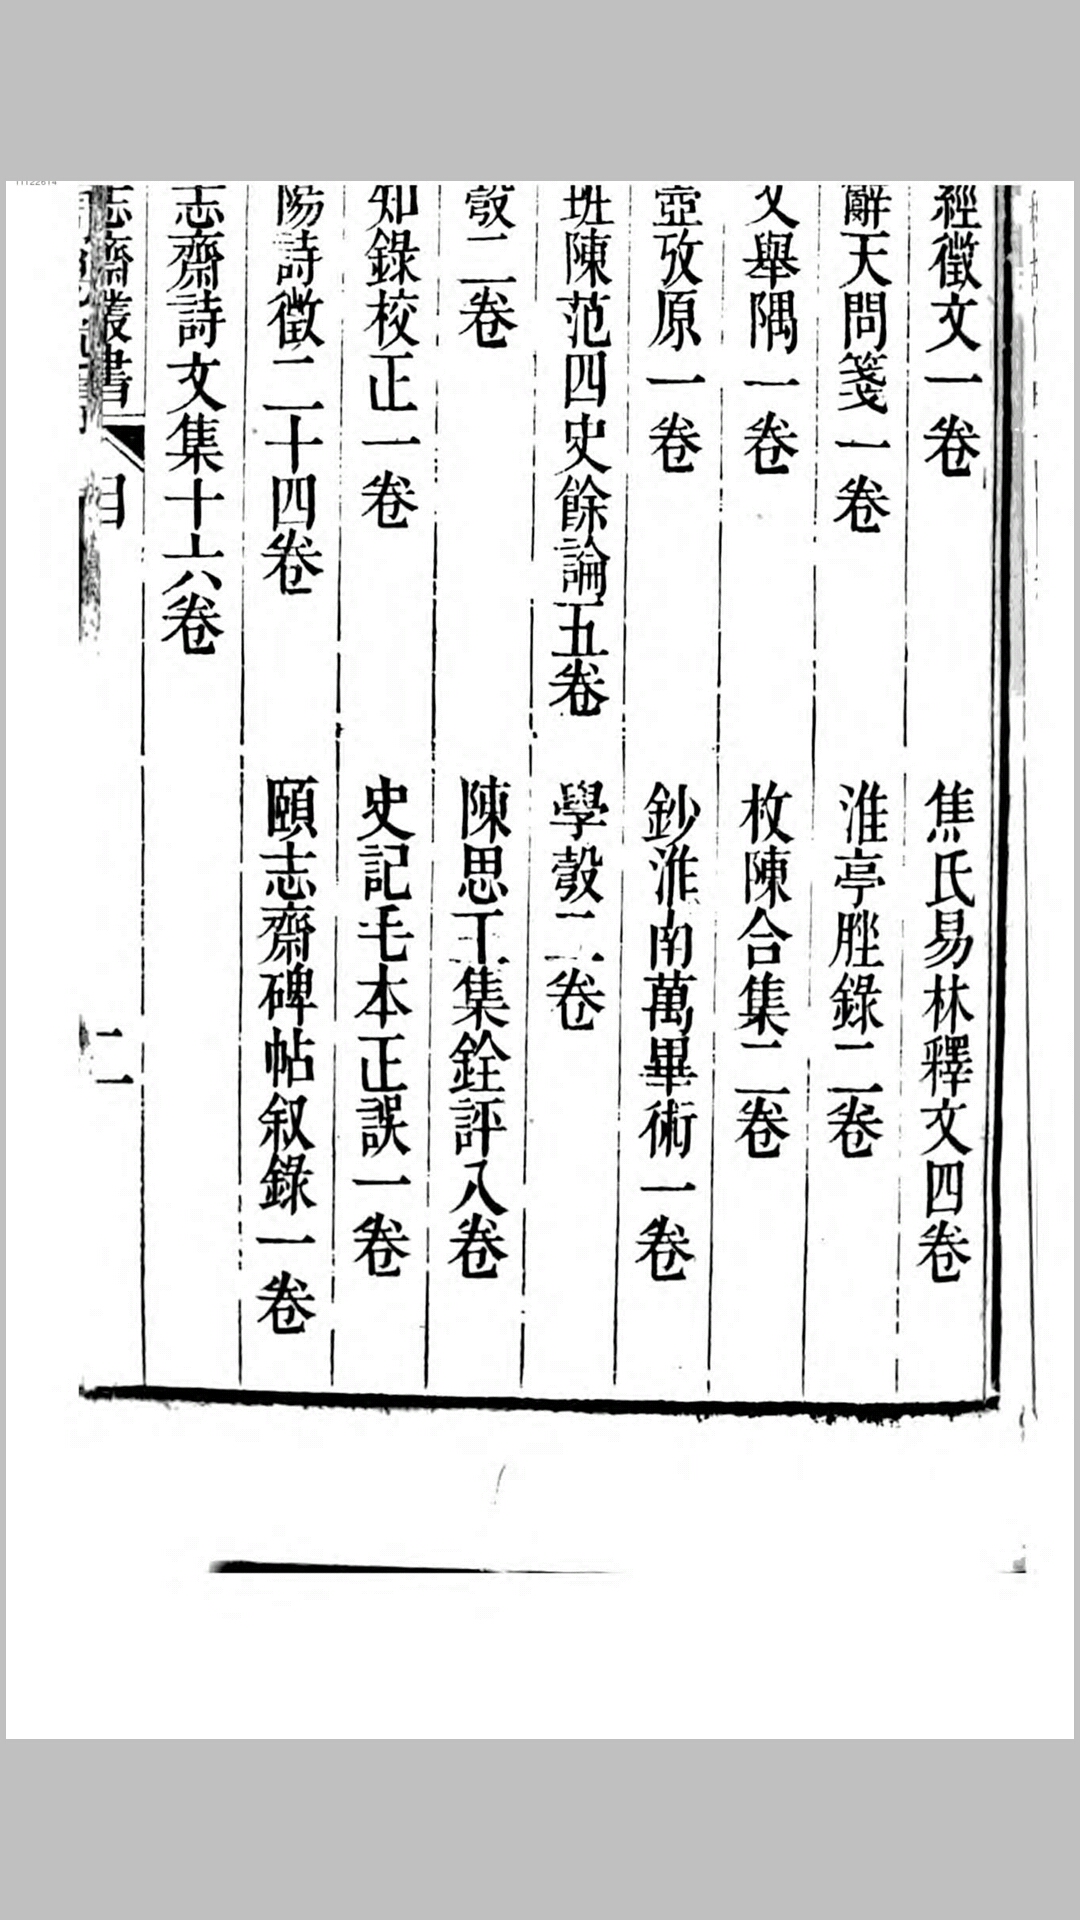 經徵文一卷 焦氏易林釋文四卷
辭天問箋一卷 淮亭脞錄二卷
文舉隅一卷 枚陳合集二卷
壺攷原一卷 鈔淮南萬畢術一卷
班陳范四史餘論五卷 學彀二卷
彀二卷 陳思王集銓評八卷
知錄校正一卷 史記毛本正誤一卷
陽詩徵二十四卷 頤志齋碑帖叙錄一卷
志齋詩文集十六卷
志齋叢書 目 二